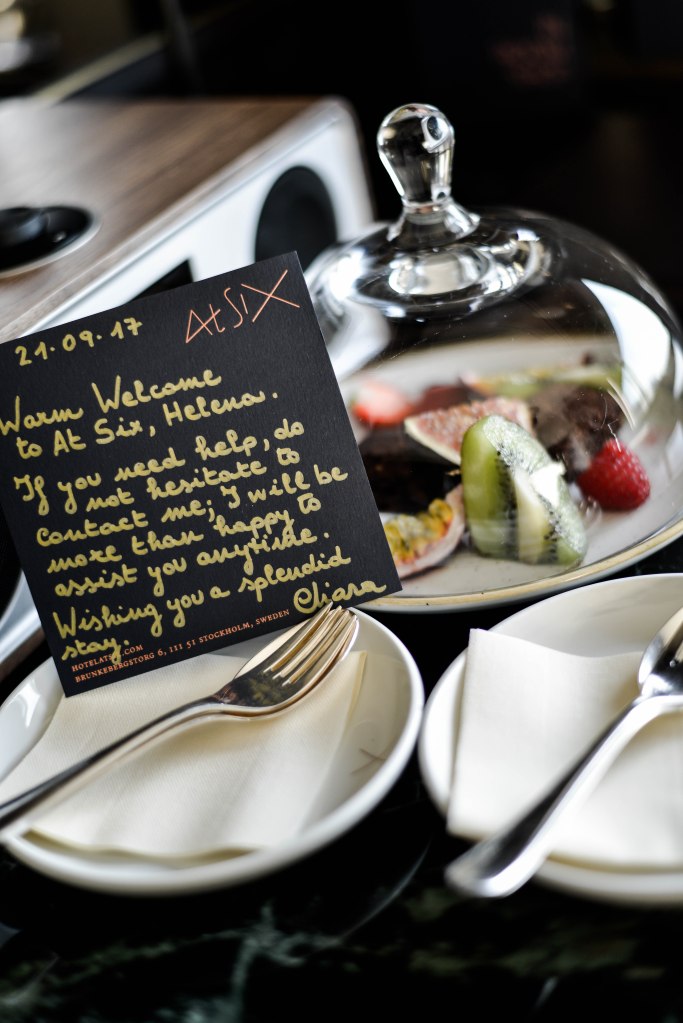 At SIX
21.09.17
Warm Welcome
to At Six, Helena.
If you need help, do
not hesitate to
contact me; I will be
more than happy to
assist you anytime.
Wishing you a splendid
stay.
Chiara
HOTELATSIX.COM
BRUNKEBERGSTORG 6, 111 51 STOCKHOLM, SWEDEN